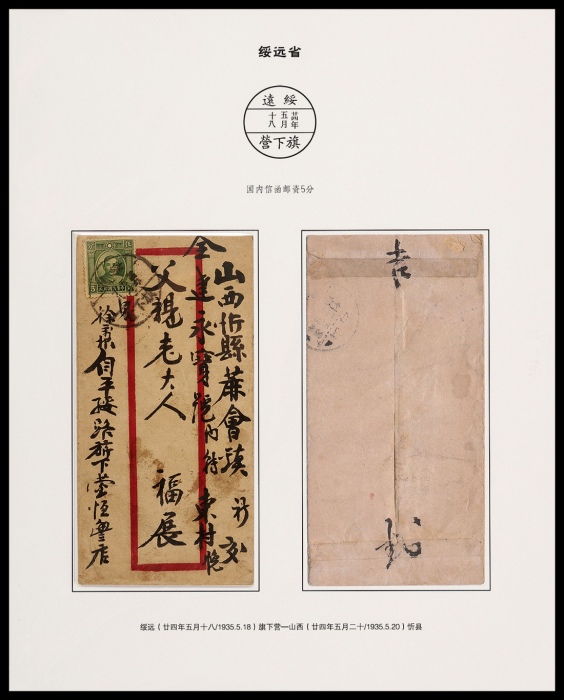 绥远省
遠綏
廿四年五月十八
營下旗
国内信函邮资5分
山西忻縣蔴會鎮 祈交
仝達永寶號内轉 東村
父親老大人 福展
自平綏路旗下营恒豐店
吉
绥远（廿四年五月十八/1935.5.18）旗下营—山西（廿四年五月二十/1935.5.20）忻县